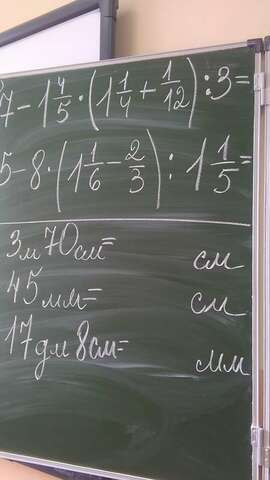 7 - 1 4/5 · (1 1/4 + 1/12) : 3 =
5 - 8 · (1 1/6 - 2/3) : 1 1/5 =
3м 70см = см
45мм = см
17дм 8см = мм